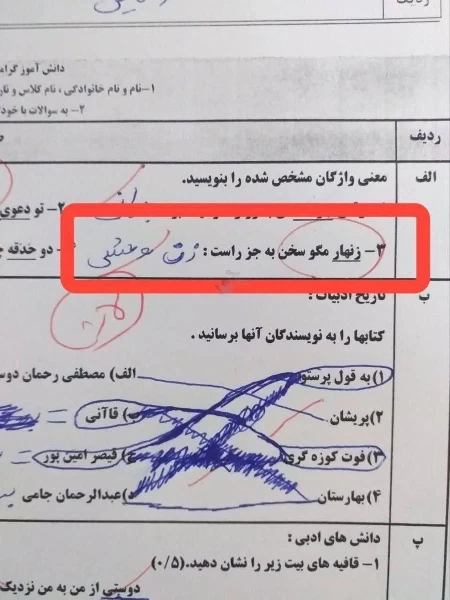 ردیف
دانش آموز گرامی
۱-نام و نام خانوادگی ، نام کلاس و
۲- به سوالات با
ردیف
الف
معنی واژگان مشخص شده را بنویسید.
۲- تو دعوی
۳- زنهار مگو سخن به جز راست : زن وحشی
دو حدقه
ب
تاریخ ادبیات :
کتابها را به نویسندگان آنها برسانید .
۱) به قول پرستو
الف) مصطفی رحمان
۲) پریشان
ب) قاآنی =
۳) فوت کوزه گری
ج) قیصر امین پور =
۴) بهارستان
د) عبدالرحمان جامی
پ
دانش های ادبی :
۱- قافیه های بیت زیر را نشان دهید. (۰/۵)
دوستی از من به من نزدیک